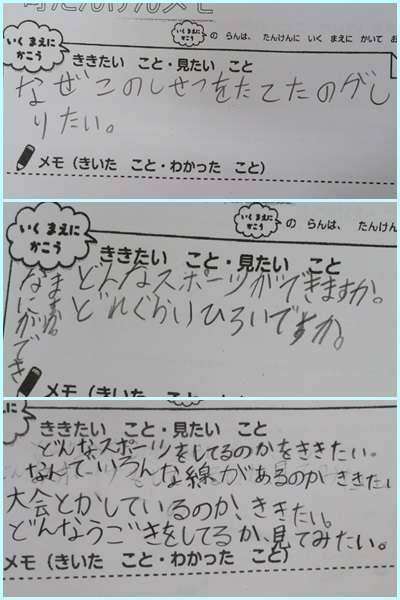 町たんけんメモ
いくまえに
かこう
いくまえに
かこう
の らんは、 たんけんに いく まえに かいて お
ききたい こと・見たい こと
なぜこのしせつをたてたのかし
りたい。
メモ（きいた こと・わかった こと）
いくまえに
かこう
いくまえに
かこう
の らんは、 たんけん
ききたい こと・見たい こと
どんなスポーツができますか。
どれぐらいひろいですか。
メモ（きいた こと・わかった こと）
ききたい こと・見たい こと
どんなスポーツをしてるのかをききたい。
なんでいろんな線があるのか ききたい
大会とかしているのか、ききたい。
どんなうごきをしてるか、見てみたい。
メモ（きいた こと・わかった こと）